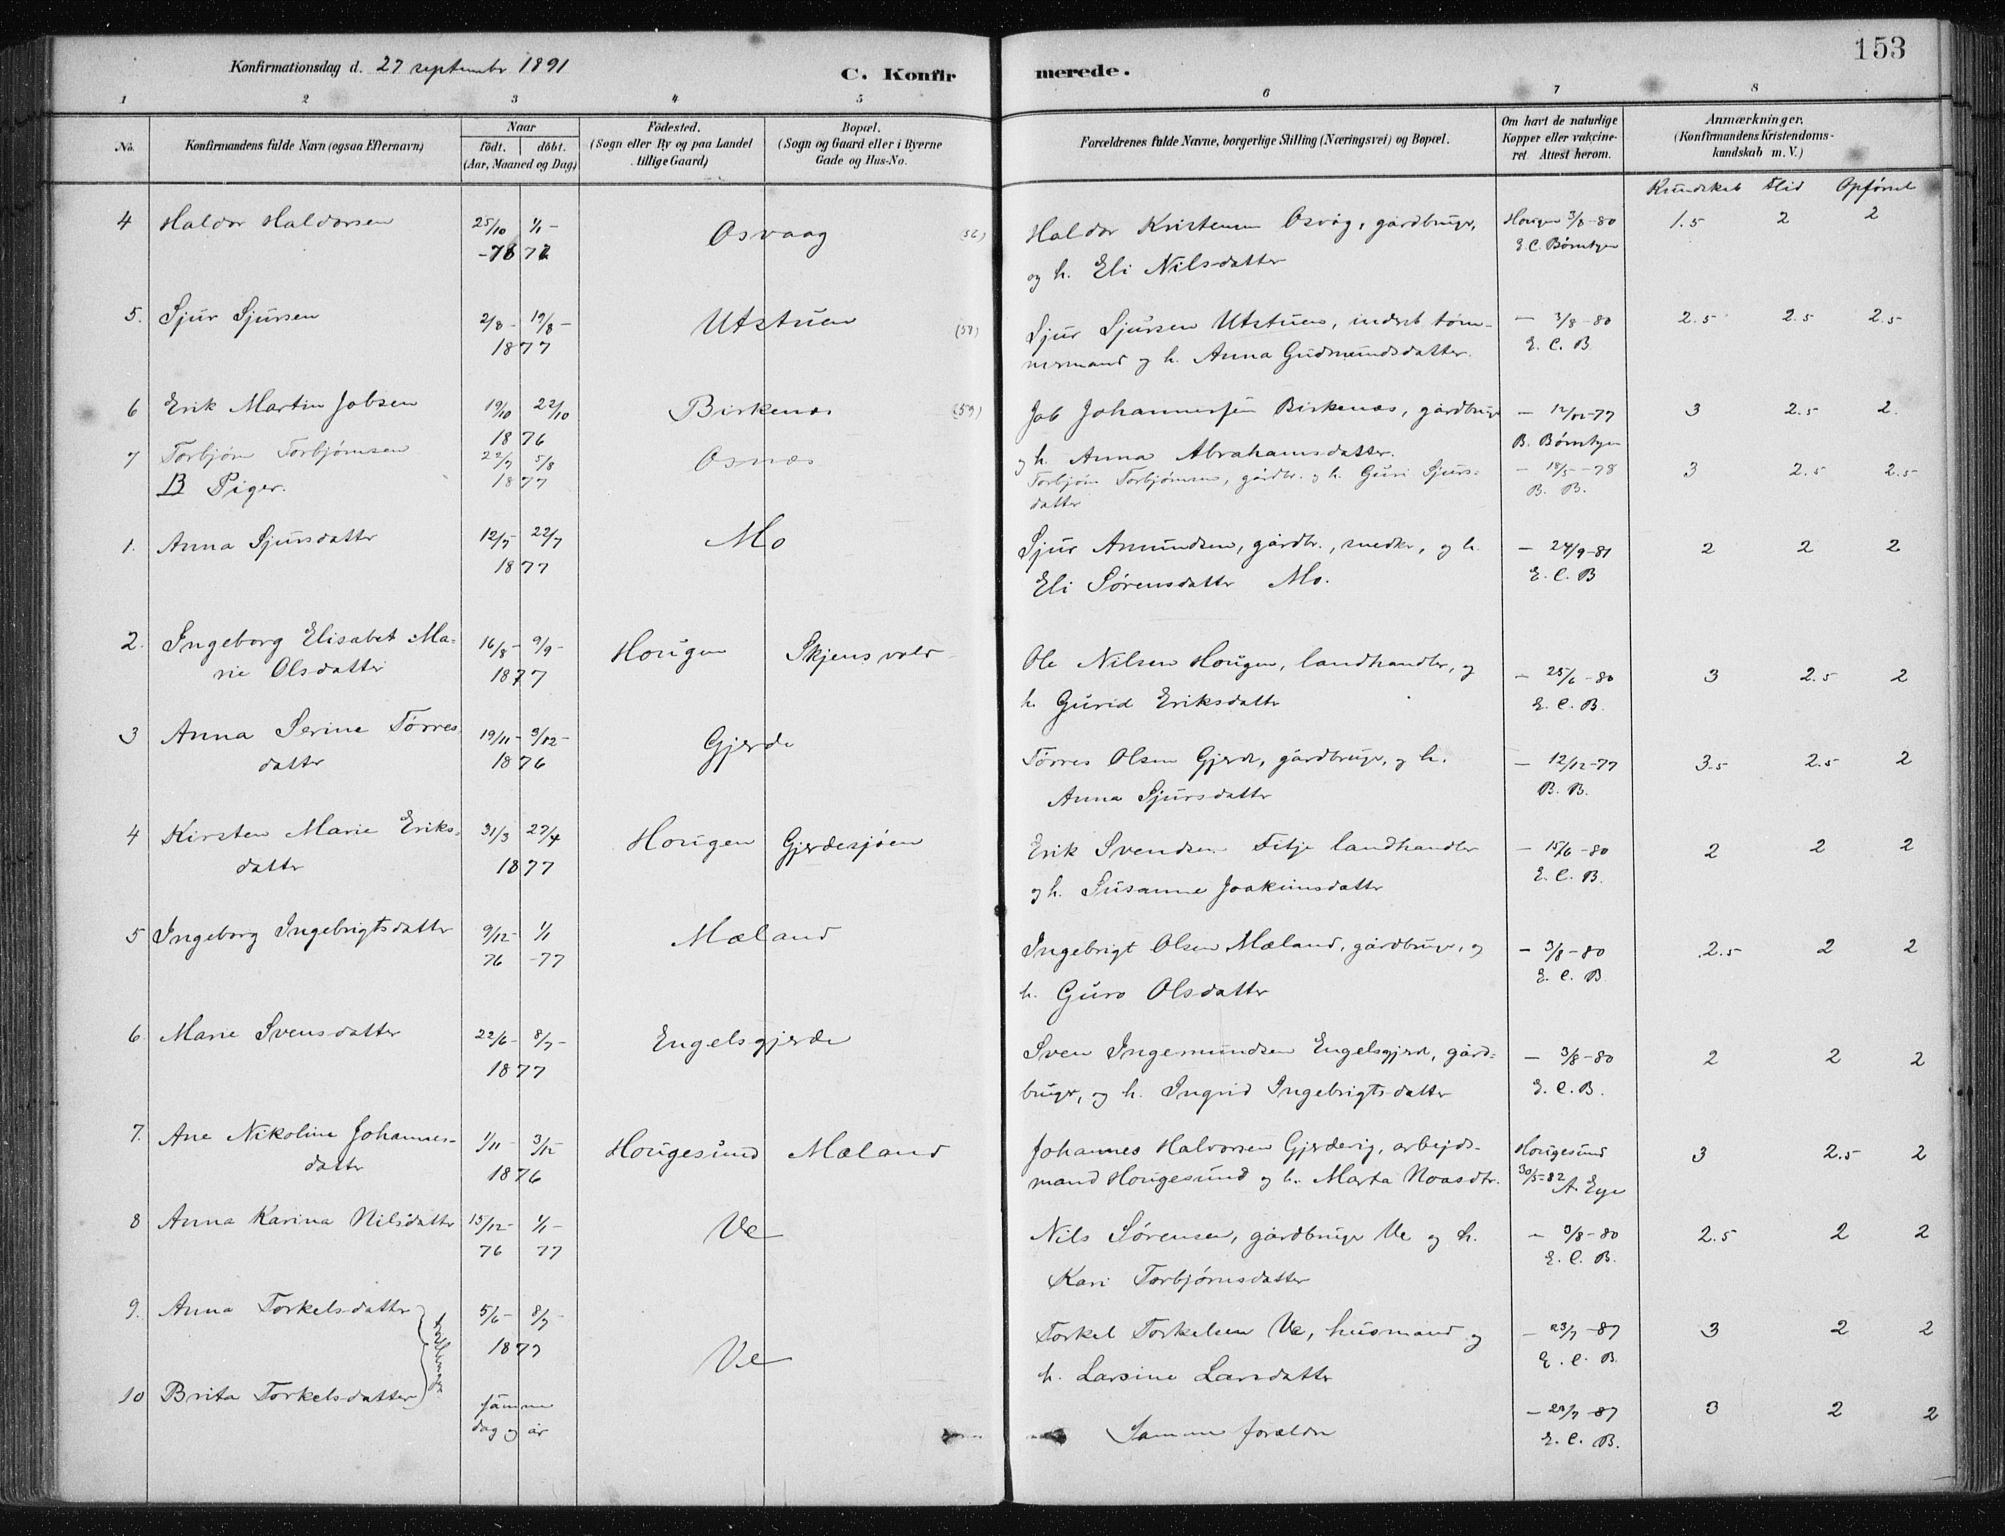 153
Konfirmationsdag d. 27 september 1891
C. Konfirmerede.
1 2 3 4 5 6 7 8
No. Konfirmandens fulde Navn (ogsaa Efternavn) Naar födt. döbt. (Aar, Maaned og Dag) Födested. (Sogn eller By og paa Landet tillige Gaard) Bopæl. (Sogn og Gaard eller i Byerne Gade og Hus-No.) Forældrenes fulde Navne, borgerlige Stilling (Næringsvei) og Bopæl. Om havt de naturlige Kopper eller vakcineret. Attest herom. Anmærkninger. (Konfirmandens Kristendomskundskab m. V.)
Kundskab Flid Opførsel
4 Haldor Haldorsen 25/10 1/1 - Osvaag (56) Haldor Kristensen Osvåg, gårdbruger, Hougen 3/8-80 1.5 2 2
-76 77 og h. Eli Nilsdatter E.C. Børntgen
5. Sjur Sjursen 2/8- 19/8- Utstuen (58) Sjur Sjursen Utstuen, inderst töm- - 3/8-80 2.5 2.5 2.5
1877 mermand og h. Anna Gudmundsdatter. E. C. B.
6 Erik Martin Jobsen 19/10 22/10 Birkenæs (59) Job Johannessen Birkenæs, gårdbruger - 12/12-77 3 2.5 2.
1876 og h. Anna Abrahamsdatter. B. Børntgen
7 Torbjørn Torbjørnsen 22/7 5/8 Osnæs Torbjørn Torbjørnsen, gårdbr. og h. Guri Sjurs- - 18/5-78 3 2.5 2.5
B Piger. 1877 datter B. B.
1. Anna Sjursdatter 12/7- 22/7 Mo Sjur Amundsen, gårdbr., snedker, og h. - 24/9-81 2 2 2
1877 Eli Sørensdatter Mo. E. C. B
2. Ingeborg Elisabet Ma- 16/8- 9/9- Hougen Skjensvold Ole Nilsen Hougen, landhandler, og - 25/6-80 3 2.5 2
rie Olsdatter 1877 h. Gurid Eriksdatter E. C. B.
3 Anna Serine Tørres 19/11- 3/12- Gjerde Tørres Olsen Gjerde, gårdbruger, og h. - 12/12-77 3.5 2.5 2
datter 1876 Anna Sjursdatter B. B.
4 Kirsten Marie Eriks- 31/3 27/4 Hougen Gjerdesjøen Erik Svendsen Fitje landhandler - 15/6-80 2 2 2
datter 1877 og h. Susanne Joakimsdatter E. C. B.
5 Ingeborg Ingebrigtsdatter 9/12- 1/1 Mæland Ingebrigt Olsen Mæland, gårdbruger, og - 3/8-80 2.5 2 2
76 -77 h. Guro Olsdatter E. C. B
6. Marie Svensdatter 22/6- 8/7- Engelsgjerde Sven Ingemundsen Engelsgjerde, gård- - 3/8-80 2 2 2
1877 bruger, og h. Ingrid Ingebrigtsdatter E. C. B.
7. Ane Nikoline Johannes- 1/11- 3/12 Hougesund Mæland Johannes Halvorsen Gjerdevig, arbejds- Hougesund 3 2.5 2
datter 1876 mand Hougesund og h. Marta Noasdtr. 30/5-82 A. Eye
8 Anna Karina Nilsdatter 15/12- 1/1- Ve Nils Sørensen, gårdbruger Ve og h. - 3/8-80 2.5 2 2
76 77 Kari Torbjørnsdatter E. C. B.
9. Anna Torkelsdatter 5/6- 8/7- Torkel Torkelsen Ve, husmand og - 23/7-87 3 2 2
tvillinger 1877 Ve h. Larsine Larsdatter E. C. B.
10 Brita Torkelsdatter samme - 23/7-87 3 2 2
dag og år Samme forældre E. C. B.